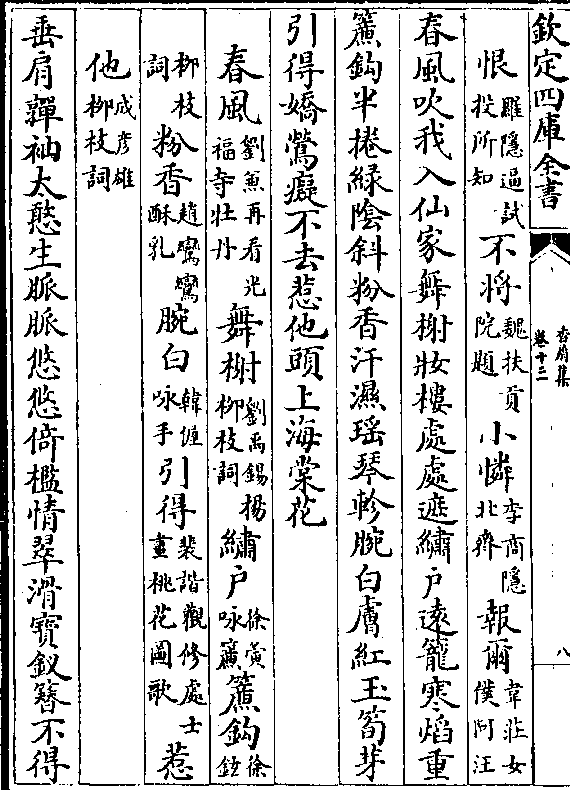 欽定四庫全書
香屑集
卷十二
八
恨羅隱逼試投所知不將魏扶貢院題小憐李商隱北齊報爾韋莊女僕阿汪
春風吹我入仙家舞榭妝樓處處遮繡户遠籠寒焰重
簾鈎半捲綠陰斜粉香汗濕瑶琴軫腕白膚紅玉筍芽
引得嬌鶯癡不去惹他頭上海棠花
春風劉魚再看光福寺牡丹舞榭劉禹錫楊柳枝詞繡户徐夤咏簾簾鈎徐鉉
柳枝詞粉香趙鸞鸞酥乳腕白韓偓咏手引得裴諧觀修處士畫桃花圖歌惹
他成彦雄柳枝詞
垂肩嚲袖太憨生脈脈悠悠倚檻情翠滑寶釵簪不得